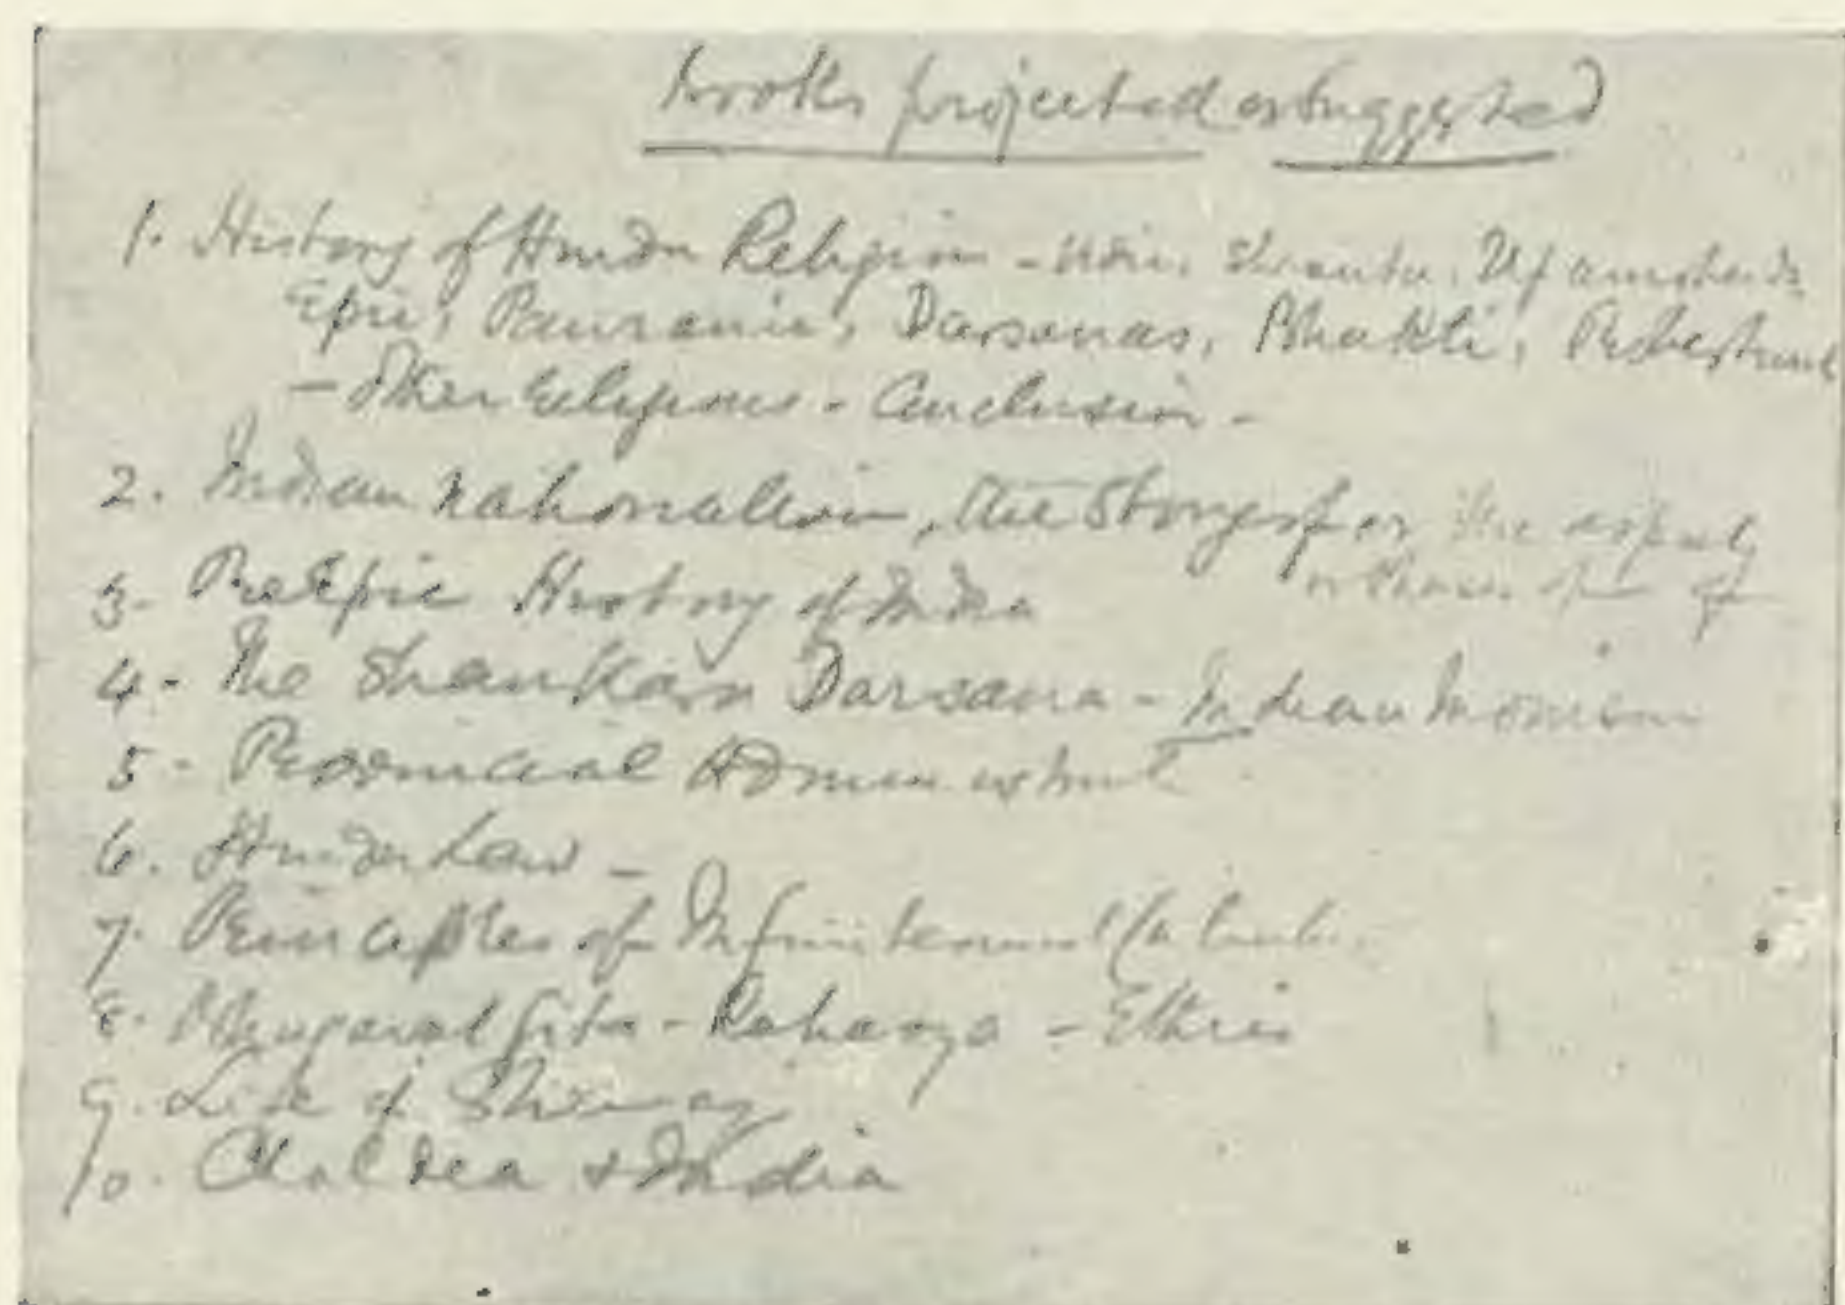 Books projected or suggested
1. History of Hindu Religion - Vedic, Shrauta, Upanishads
Epic, Pauranic, Darsanas, Bhakti,
- Other Religions - Conclusion -
2. Indian Nationalism, the Story of or the
3. Pre Epic History of India
4 - The Shankara Darsana - Indian Monism
5 - Provincial
6. Hindu Law -
7. Principles of Infinitesimal Calculus
8. Bhagavad Gita - Rahasya - Ethics
9. Life of Shivaji
10. Chaldea & India